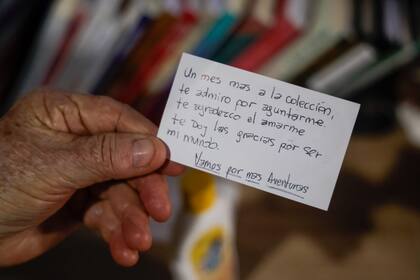 Un mes mas a la colección,
te admiro por aguntarme
te agradezco el amarme
te Doy las gracias por ser
mi mundo.
Vamos por mas Aventuras